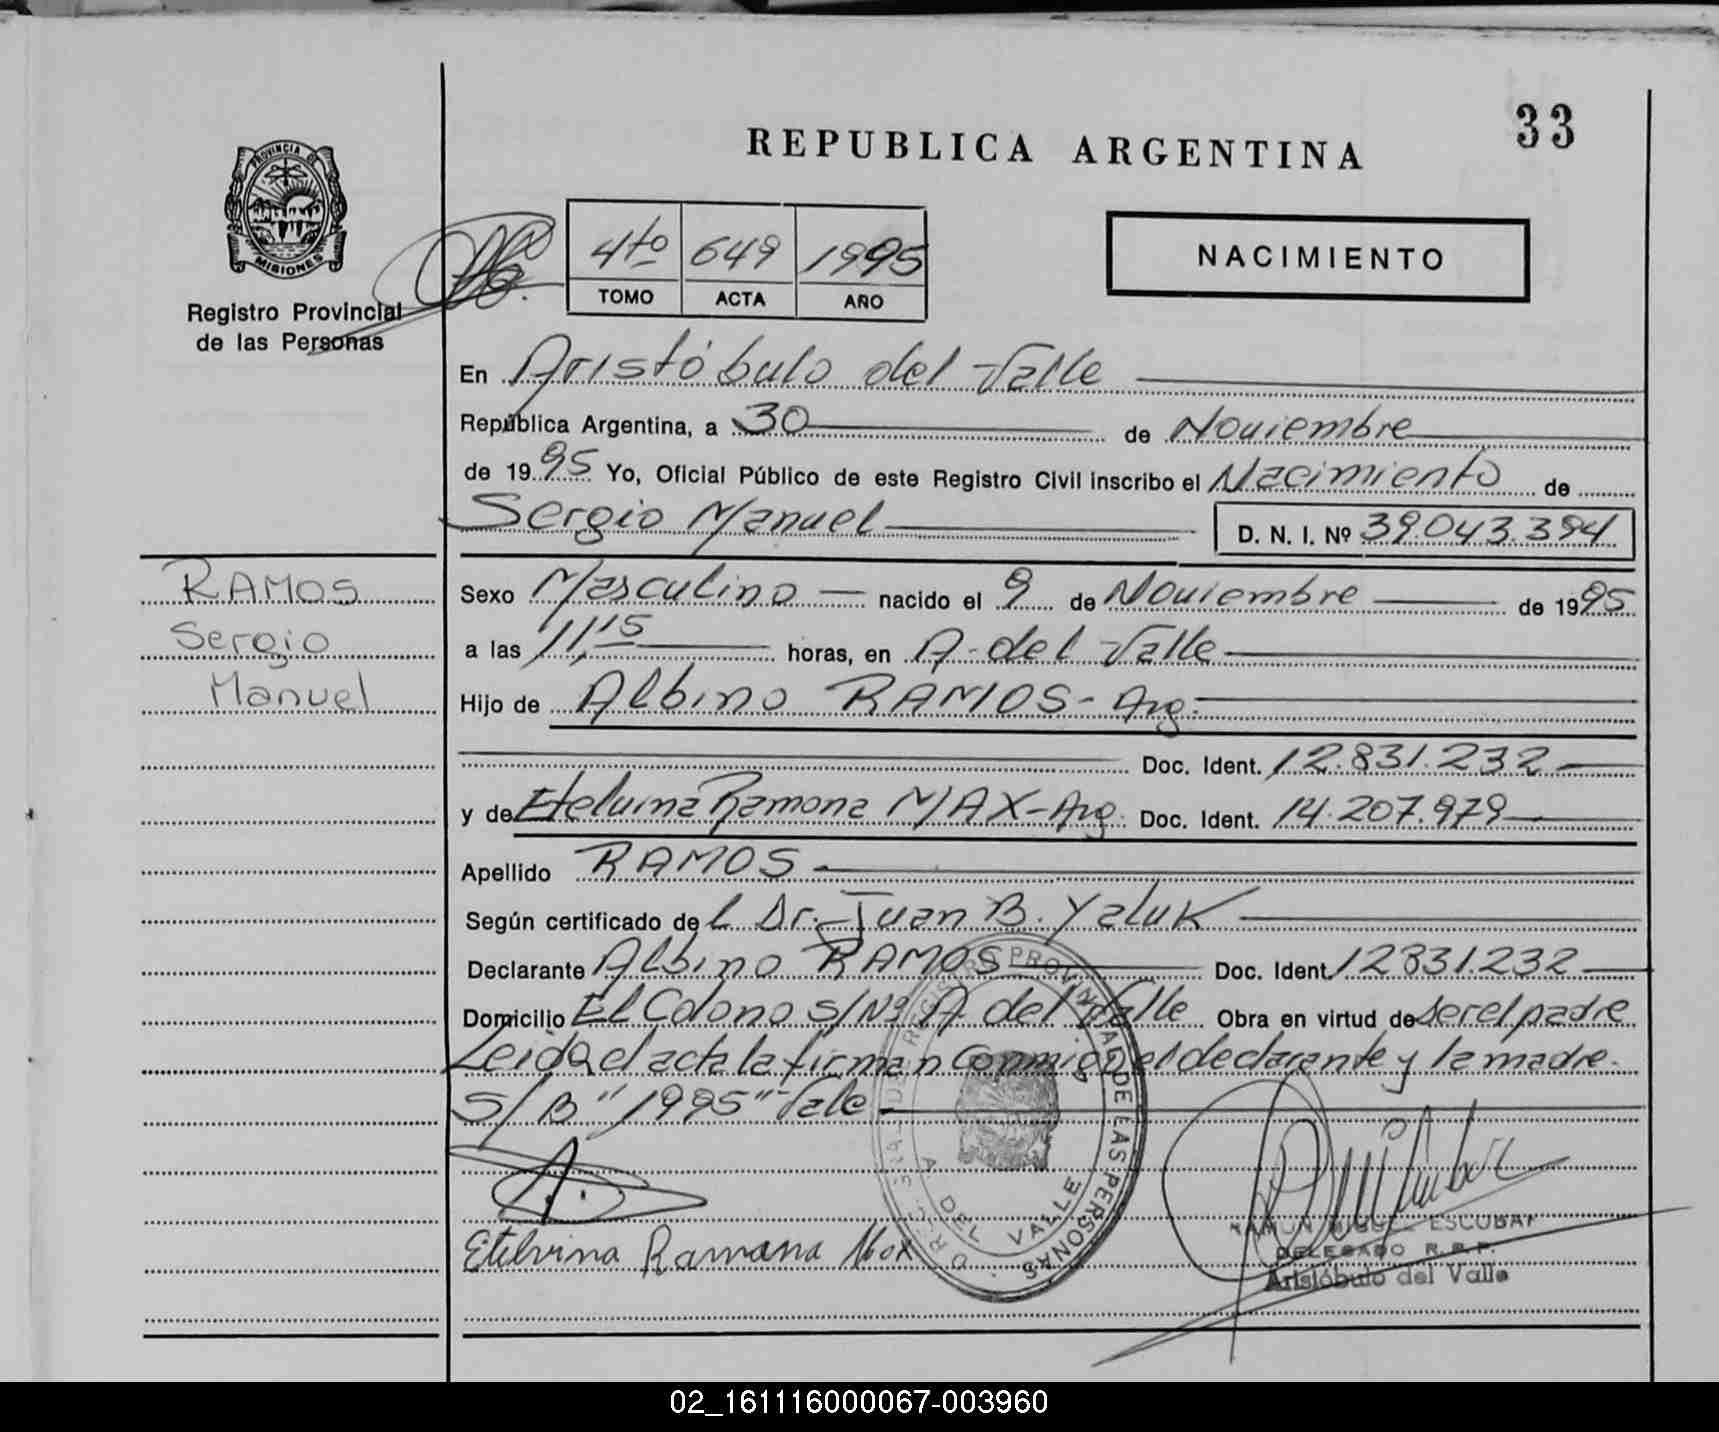 33
REPUBLICA ARGENTINA
PROVINCIA DE
MISIONES
Registro Provincial
de las Personas
4to 649 1995
TOMO ACTA AÑO
NACIMIENTO
En Aristóbulo del Valle
República Argentina, a 30 de Noviembre
de 1995 Yo, Oficial Público de este Registro Civil inscribo el Nacimiento de
Sergio Manuel D. N. I. Nº 39.043.394
RAMOS
Sergio
Manuel
Sexo Masculino nacido el 9 de Noviembre de 1995
a las 11,15 horas, en A. del Valle
Hijo de Albino RAMOS - Arg.
Doc. Ident. 12.831.232
y de Etelvina Ramona MAX - Arg. Doc. Ident. 14.207.979
Apellido RAMOS
Según certificado del Dr. Juan B. Yaluk
Declarante Albino RAMOS Doc. Ident. 12831.232
Domicilio El Colono S/Nº A del Valle Obra en virtud de ser el padre
Leida el acta la firman conmigo el declarante y la madre.
S/B "1995" Vale
PROVINCIAL DE LAS PERSONAS
A. DEL VALLE
Etelvina Ramona Max
RAMON MIGUEL ESCOBAR
DELEGADO R.P.P.
Aristóbulo del Valle
02_161116000067-003960